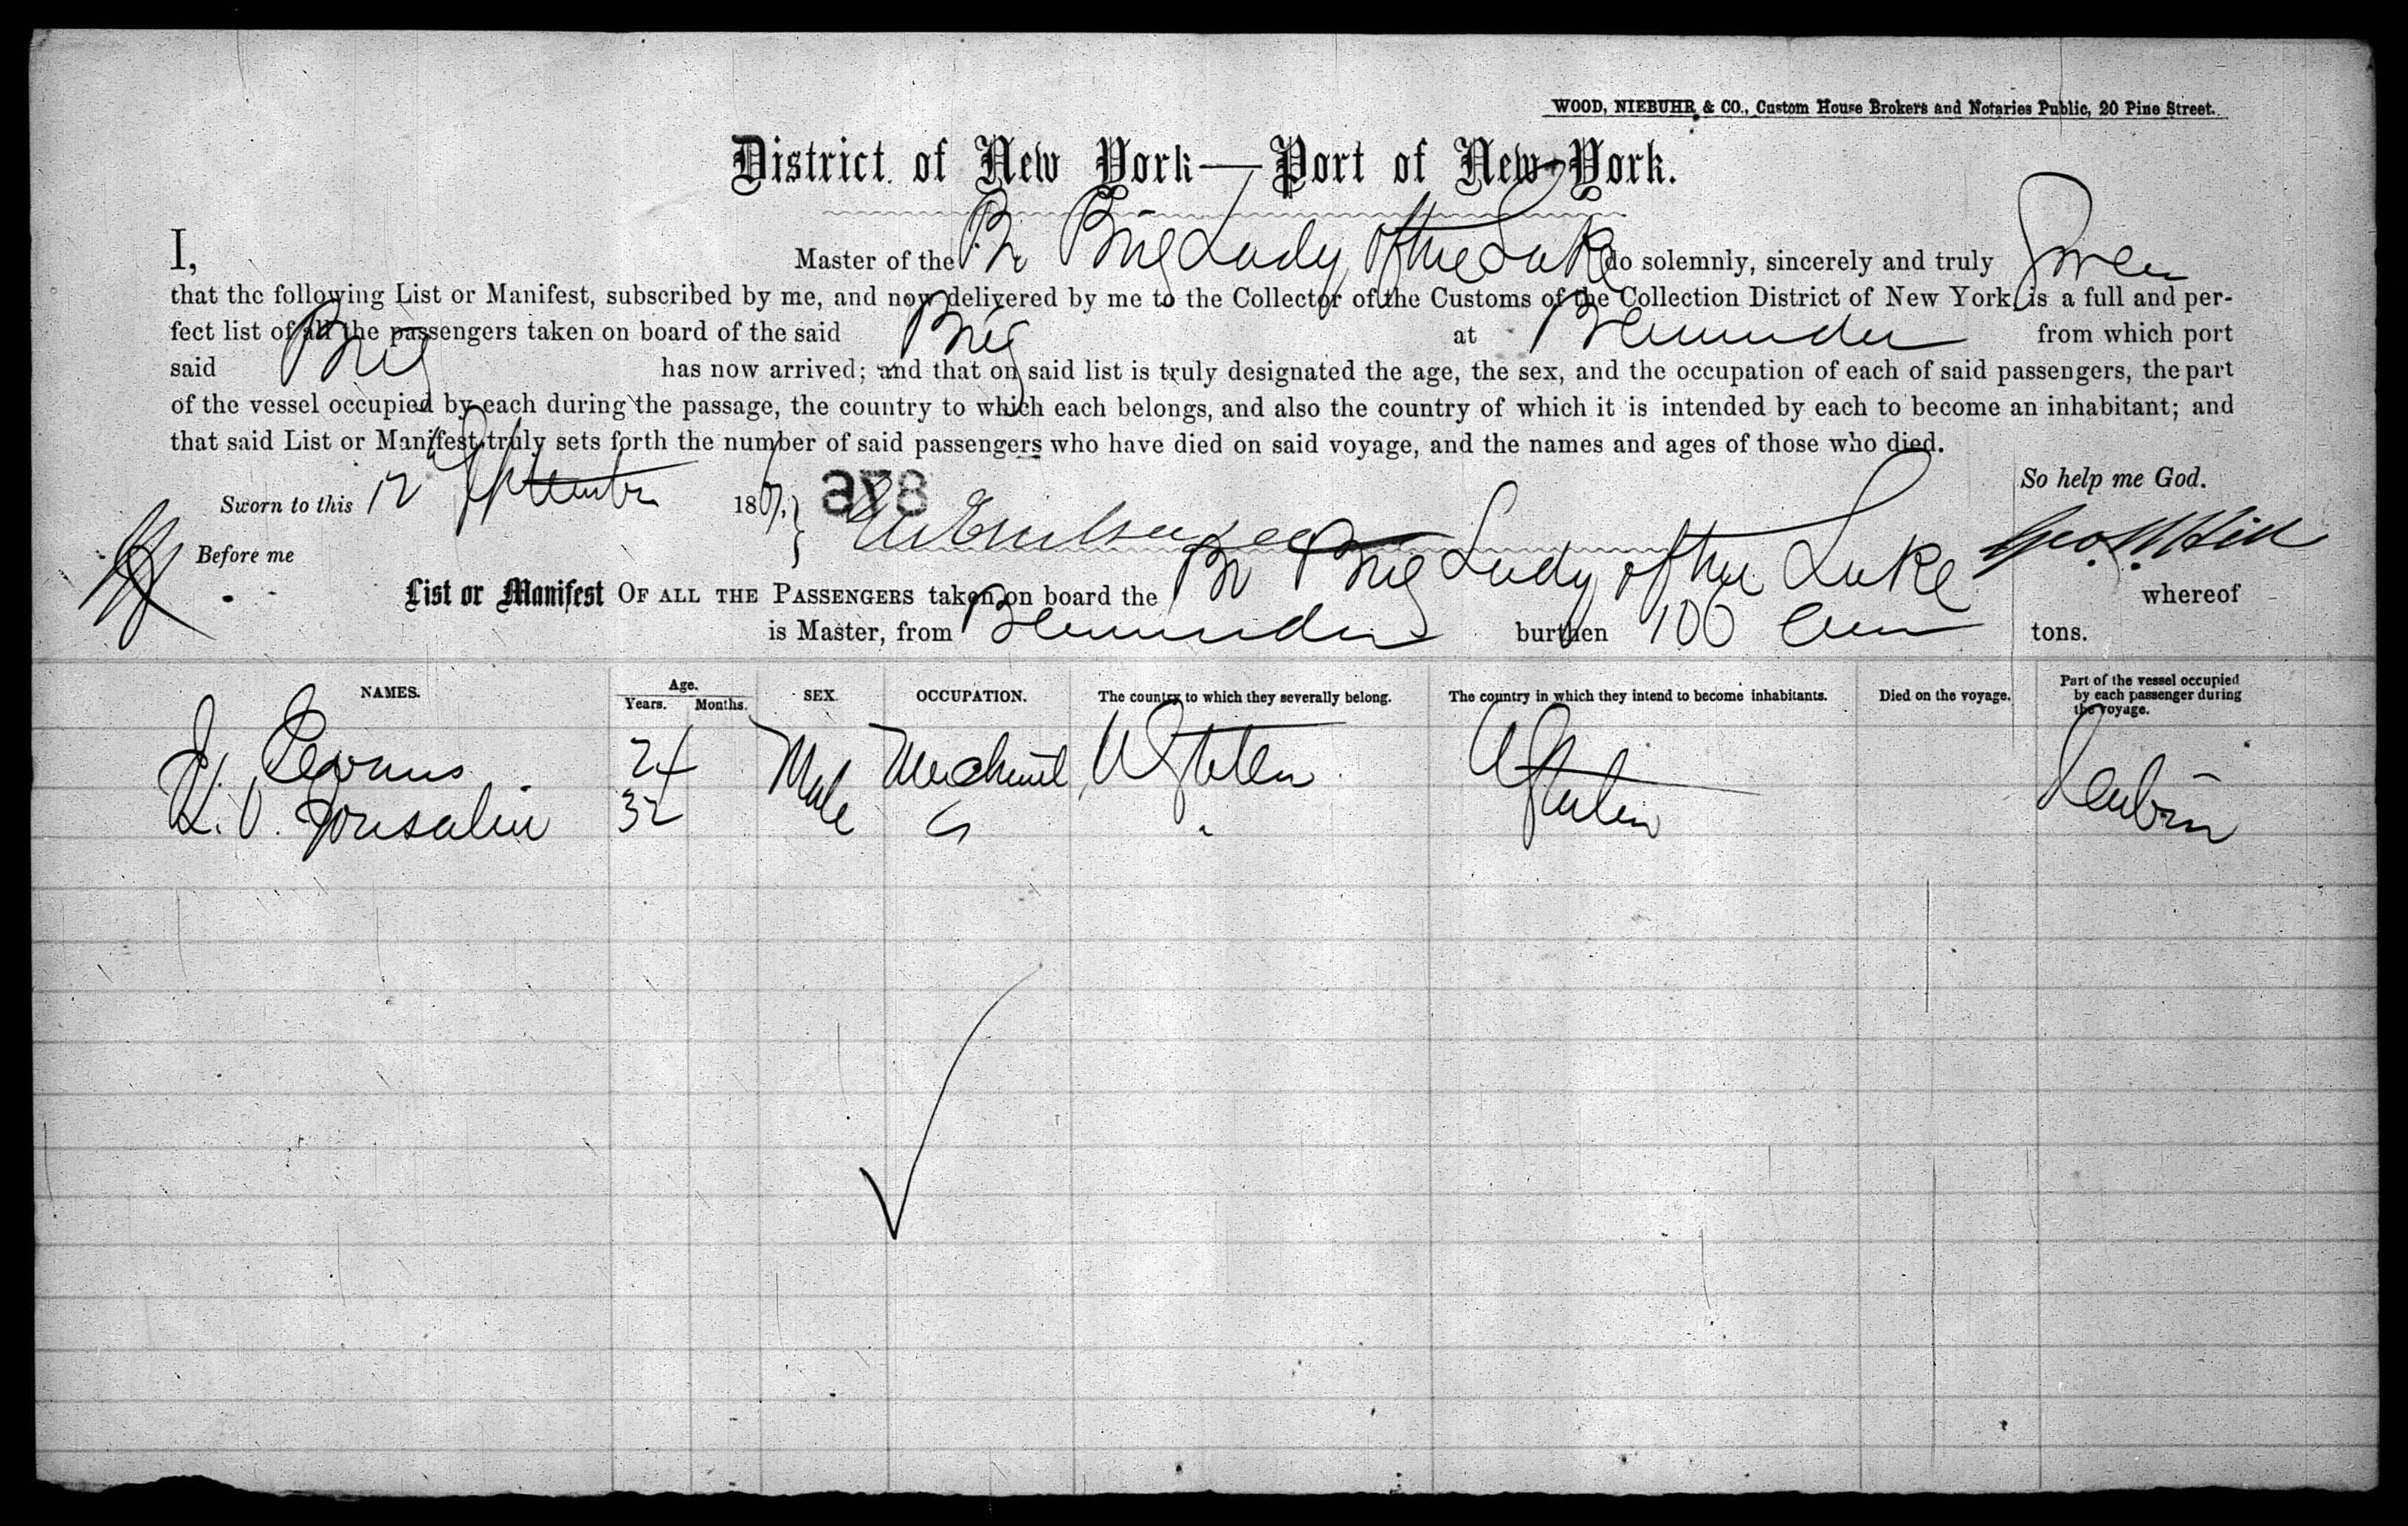 WOOD, NIEBUHR & CO., Custom House Brokers and Notaries Public, 20 Pine Street.
District of New York—Port of New-York.
I, Master of the Br Brig Lady of the Lake do solemnly, sincerely and truly Swear
that the following List or Manifest, subscribed by me, and now delivered by me to the Collector of the Customs of the Collection District of New York, is a full and per-
fect list of all the passengers taken on board of the said Brig at Bermuda from which port
said Brig has now arrived; and that on said list is truly designated the age, the sex, and the occupation of each of said passengers, the part
of the vessel occupied by each during the passage, the country to which each belongs, and also the country of which it is intended by each to become an inhabitant; and
that said List or Manifest truly sets forth the number of said passengers who have died on said voyage, and the names and ages of those who died.
So help me God.
Sworn to this 12 September 18 878
Before me Geo. Hill
List or Manifest OF ALL THE PASSENGERS taken on board the Br Brig Lady of the Lake whereof
is Master, from Bermuda burthen 100 tons.
NAMES. Age. Years. Months. SEX. OCCUPATION. The country to which they severally belong. The country in which they intend to become inhabitants. Died on the voyage. Part of the vessel occupied by each passenger during the voyage.
J. 24 Male Mechanic U States U States Cabin
32 "